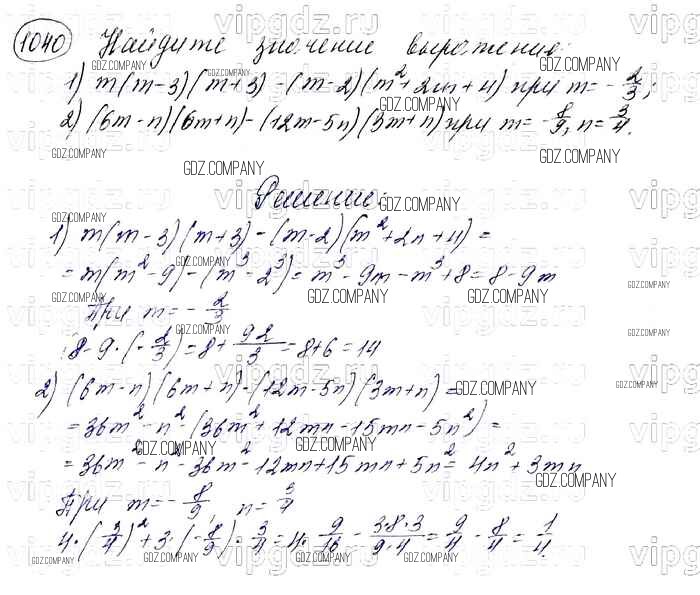 1040 Найдите значение выражения:
1) m(m-3)(m+3)-(m-2)(m²+2m+4) при m=-2/3;
2) (6m-n)(6m+n)-(12m-5n)(3m+n) при m=-8/9, n=3/4.
Решение:
1) m(m-3)(m+3)-(m-2)(m²+2n+4)=
=m(m²-9)-(m³-2³)=m³-9m-m³+8=8-9m
При m=-2/3
8-9·(-2/3)=8+9·2/3=8+6=14
2) (6m-n)(6m+n)-(12m-5n)(3m+n)=
=36m²-n²-(36m²+12mn-15mn-5n²)=
=36m²-n²-36m²-12mn+15mn+5n²=4n²+3mn
При m=-8/9, n=3/4
4·(3/4)²+3·(-8/9)·3/4=4·9/16-3·8·3/9·4=9/4-8/4=1/4.
vipgdz.ru
GDZ.COMPANY